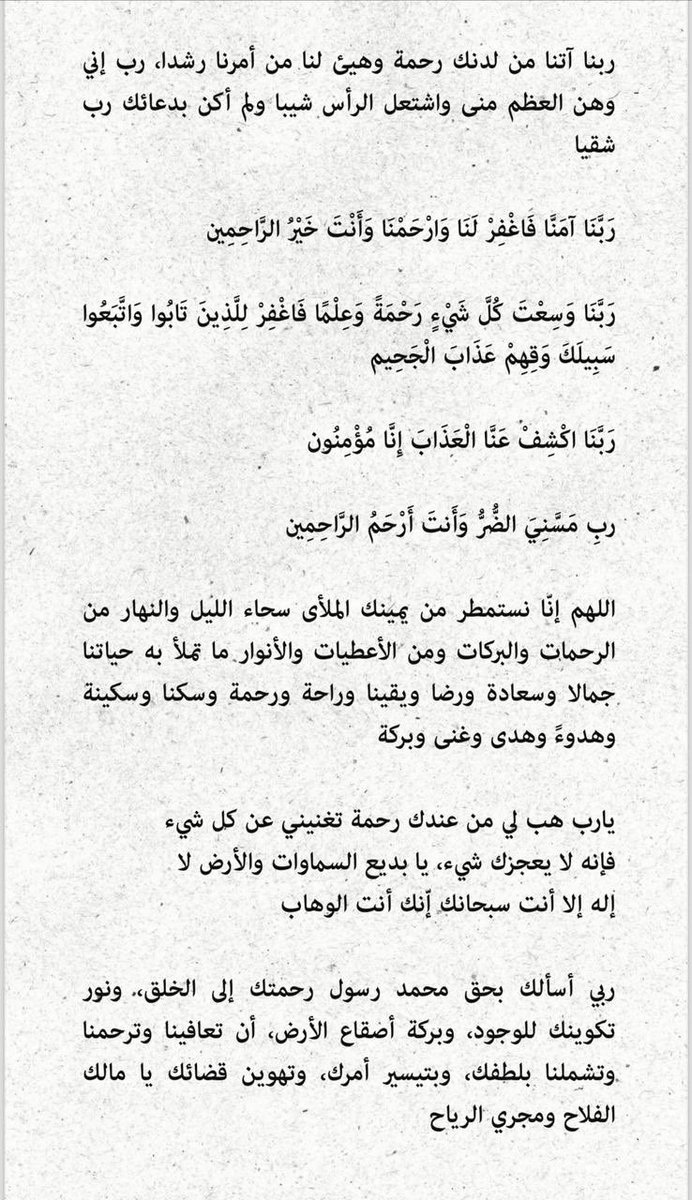 ربنا آتنا من لدنك رحمة وهيئ لنا من أمرنا رشدا، رب إني
وهن العظم منى واشتعل الرأس شيبا ولم أكن بدعائك رب
شقيا
رَبَّنَا آمَنَّا فَاغْفِرْ لَنَا وَارْحَمْنَا وَأَنْتَ خَيْرُ الرَّاحِمِين
رَبَّنَا وَسِعْتَ كُلَّ شَيْءٍ رَحْمَةً وَعِلْمًا فَاغْفِرْ لِلَّذِينَ تَابُوا وَاتَّبَعُوا
سَبِيلَكَ وَقِهِمْ عَذَابَ الْجَحِيم
رَبَّنَا اكْشِفْ عَنَّا الْعَذَابَ إِنَّا مُؤْمِنُون
ربِ مَسَّنِيَ الضُّرُّ وَأَنتَ أَرْحَمُ الرَّاحِمِين
اللهم إنّا نستمطر من يمينك الملأى سحاء الليل والنهار من
الرحمات والبركات ومن الأعطيات والأنوار ما تملأ به حياتنا
جمالا وسعادة ورضا ويقينا وراحة ورحمة وسكنا وسكينة
وهدوءً وهدى وغنى وبركة
يارب هب لي من عندك رحمة تغنيني عن كل شيء
فإنه لا يعجزك شيء، يا بديع السماوات والأرض لا
إله إلا أنت سبحانك إنّك أنت الوهاب
ربي أسألك بحق محمد رسول رحمتك إلى الخلق، ونور
تكوينك للوجود، وبركة أصقاع الأرض، أن تعافينا وترحمنا
وتشملنا بلطفك، وبتيسير أمرك، وتهوين قضائك يا مالك
الفلاح ومجري الرياح